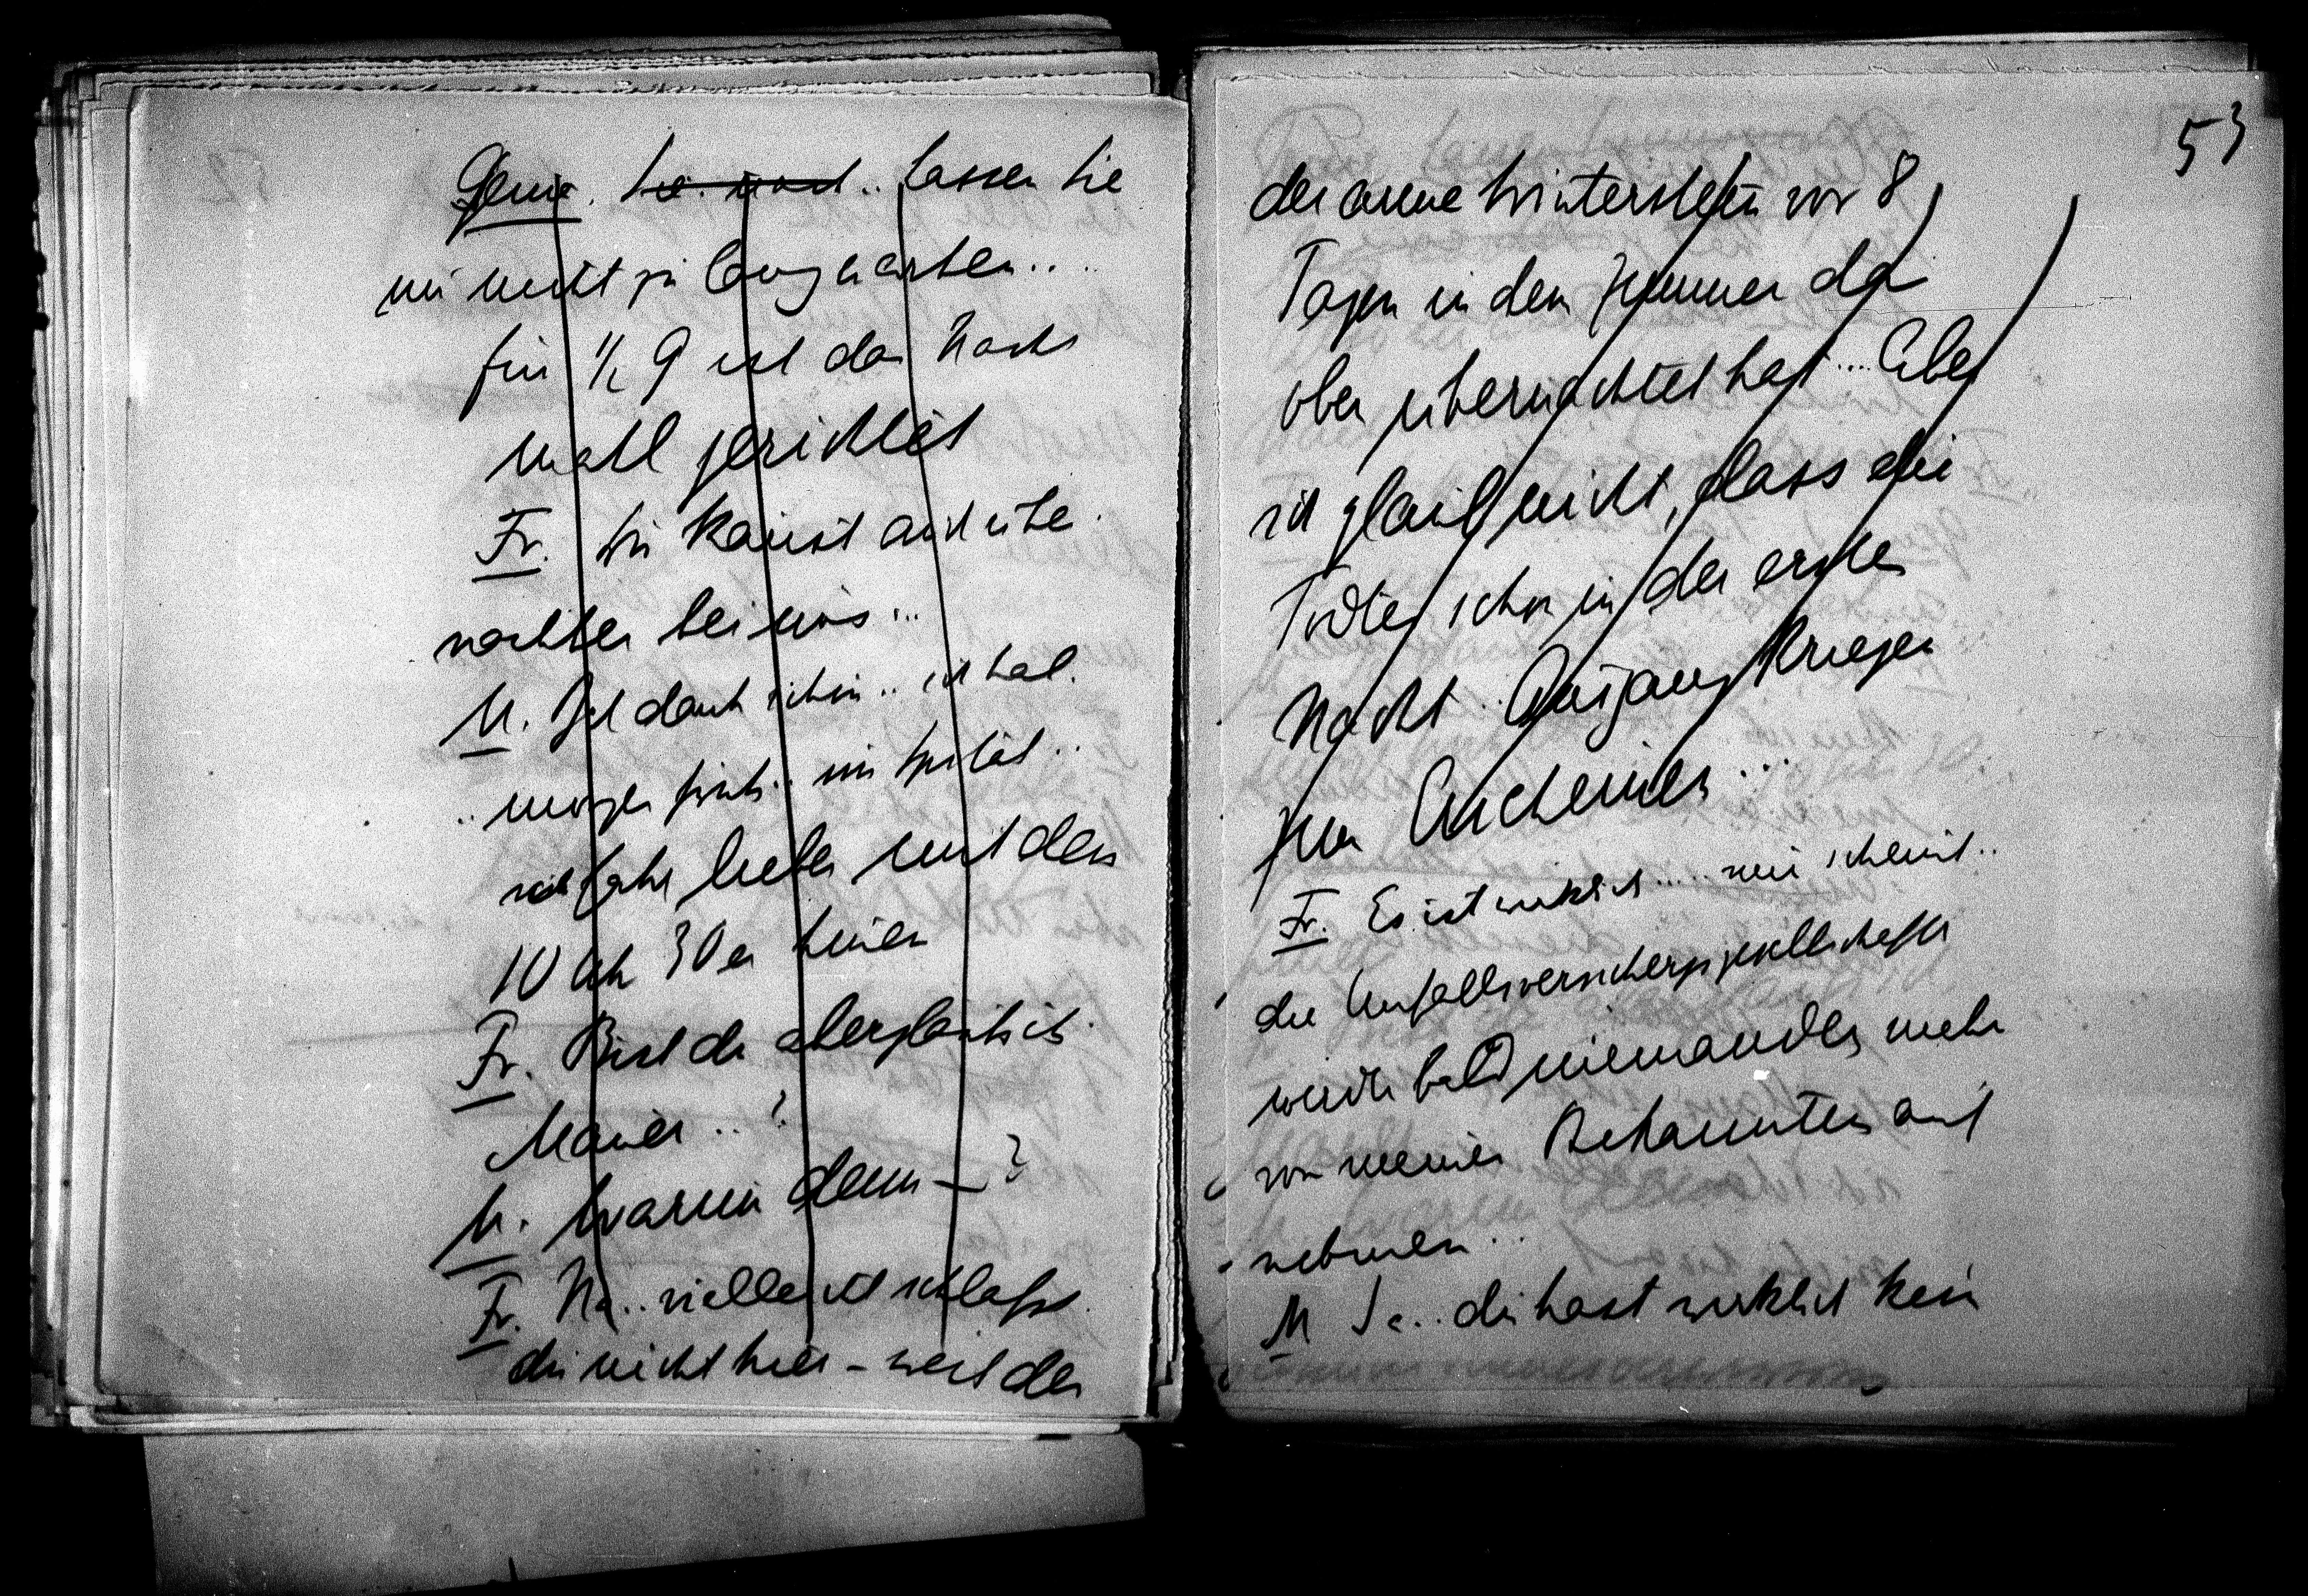 Genia. .. Lassen Sie
mir nicht zu lang warten....
für ½ 9 ist das Nacht
mahl gerichtet
Fr. Du kannst auch übe
nachten bei uns...
M. Ich dank schön.. ich hab.
.. morgen früh.. im Spital..
ich fahr lieber mit dem
10 Uhr 30 er hinein
Fr. Bist du abergläubisch
Mauer..?
M. Warum denn – ?
Fr. Na.. vielleicht schlafst
du nicht hier – weil der
53
der arme Winterstein vor 8
Tagen in dem Zimmer da
oben übernachtet hat.... Aber
ich glaub nicht, dass die
Todten schon in der ersten
Nacht.. Ausgang kriegen
zum Erscheinen...
Fr. Es ist wirklich..... mir scheint..
die Unfallsversicherungsgesellschaften
werden bald niemanden mehr
von meinen Bekannten auf
nehmen..
M Ja.. du hast wirklich kein